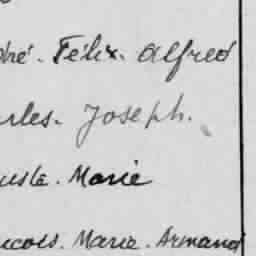 phé. Félix. Alfred
rles. Joseph.
uste. Marie
ncois. Marie. Armand